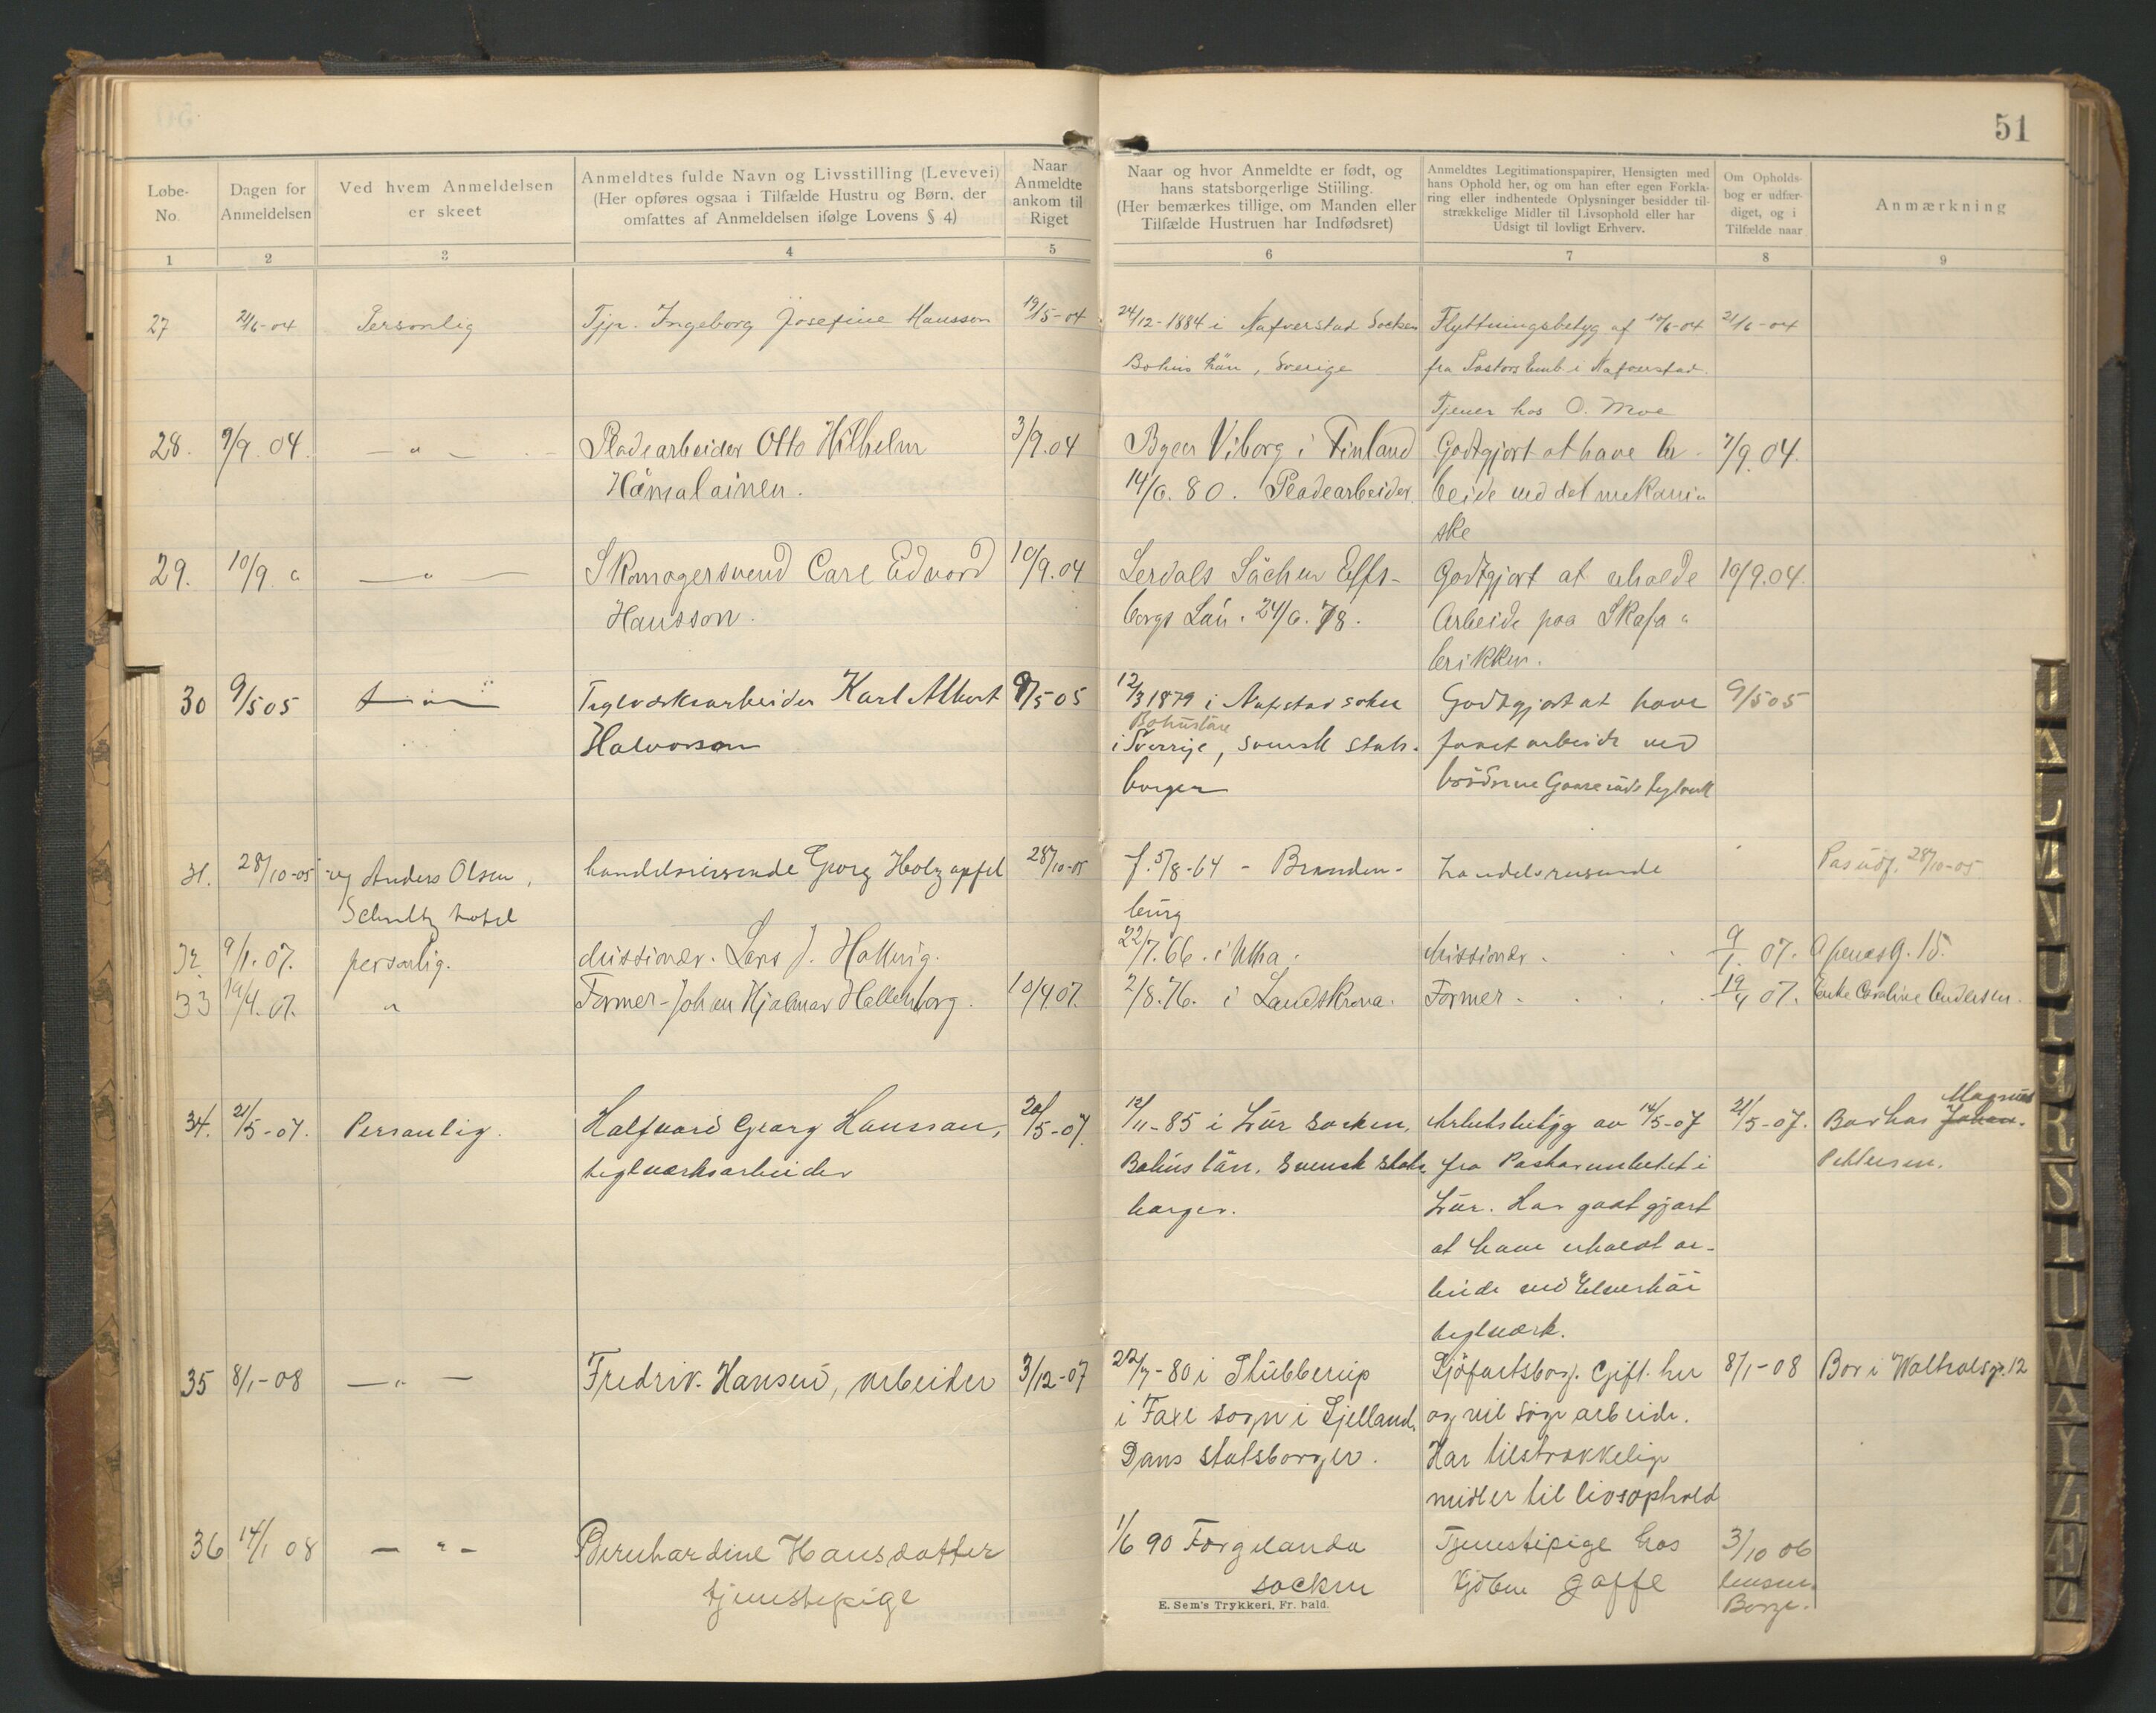 51
Løbe-No.
Dagen for Anmeldelsen
Ved hvem Anmeldelsen er skeet
Anmeldtes fulde Navn og Livsstilling (Levevei)
(Her opføres ogsaa i Tilfælde Hustru og Børn, der
omfattes af Anmeldelsen ifølge Lovens § 4)
Naar Anmeldte ankom til Riget
Naar og hvor Anmeldte er født, og
hans statsborgerlige Stilling.
(Her bemærkes tillige, om Manden eller
Tilfælde Hustruen har Indfødsret)
Anmeldtes Legitimationspapirer, Hensigten med
hans Ophold her, og om han efter egen Forkla-
ring eller indhentede Oplysninger besidder til-
strækkelige Midler til Livsophold eller har
Udsigt til lovligt Erhverv.
Om Opholds-
bog er udfær-
diget, og i
Tilfælde naar
Anmærkning
1 2 3 4 5 6 7 8 9
27 21/6-04 Personlig Tjp. Ingeborg Josefine Hansson 19/5-04 24/12-1884 i Nafverstad Socken Flyttningsbetyg af 10/6-04 21/6-04
Bohus län, Sverige fra Pastors Emb. i Nafverstad.
Tjener hos O. Moe
28. 7/9 04. — " — Pladearbeider Otto Wilhelm 3/9.04 Byen Viborg i Finland Godtgjort at have Ar- 7/9.04.
Hämalainen. 14/6.80. Pladearbeider. beide ved det mekani-
ske
29. 10/9 " — " — Skomagersvend Carl Edvard 10/9.04 Lerdals Söcken Elfs- Godtgjort at erholde 10/9.04.
Hansson. borgs Län. 24/6.78. Arbeide paa Skofa-
brikken.
30 9/5 05 — " — Teglværksarbeider Karl Albert 9/5 05 12/3 1879 i Nafstad soken Godtgjort at have 9/5 05
Bohuslän
Halvorsen i Sverrige, svensk stats- faaet arbeide ved
borger brödrene Teglværk
31. 28/10-05 v/ Anders Olsen, handelsreisende Georg Holzapfel 28/10-05 f. 5/8-64 - Branden- handelsreisende Pas udf. 28/10-05
Schultz hotel burg
32. 9/1.07. personlig. Missionær. Lars J. Hallwig. 22/7.66. i Missionær. 9/1 07. 15.
33 19/4.07. " Former-Johan Hjalmar Hallenborg. 10/4 07. 2/8.76. i Landskrona. Former. 19/4 07. Enke Caroline Andersen.
34. 21/5-07. Personlig. Halfvard Georg Hansson, 20/5-07. 12/11-85 i Lür Socken, Arbetsbetyg av 14/5-07 21/5-07. Bor hos Johan. Magnus
teglværksarbeider Bohus län. Svensk stats- fra Pastorsembetet i Pettersen.
borger. Lür. Har godtgjort
at have erholdt ar-
beide ved Elverhöi
teglværk.
35 8/1-08 — " — Fredrik Hansen, arbeider 3/12-07 22/7-80 i Stubberup Sjöfartsbog. Gift. her 8/1-08 Bor i Walhalsg. 12
i Faxe sogn i Sjelland, og vil søge arbeide.
Dans statsborger. Har tilstrækkelige
midler til livsophold
36 14/1 08 — " — Bernhardine Hansdatter 1/6 90 Forgelanda Tjenestepige hos 3/10 06
tjenestepige socken Kjöbm Gaffe lensm.
Borge.
E. Sem's Trykkeri, Fr. hald.
J
L
M
N
S
T
U
W
Y
Z
Æ
Ø